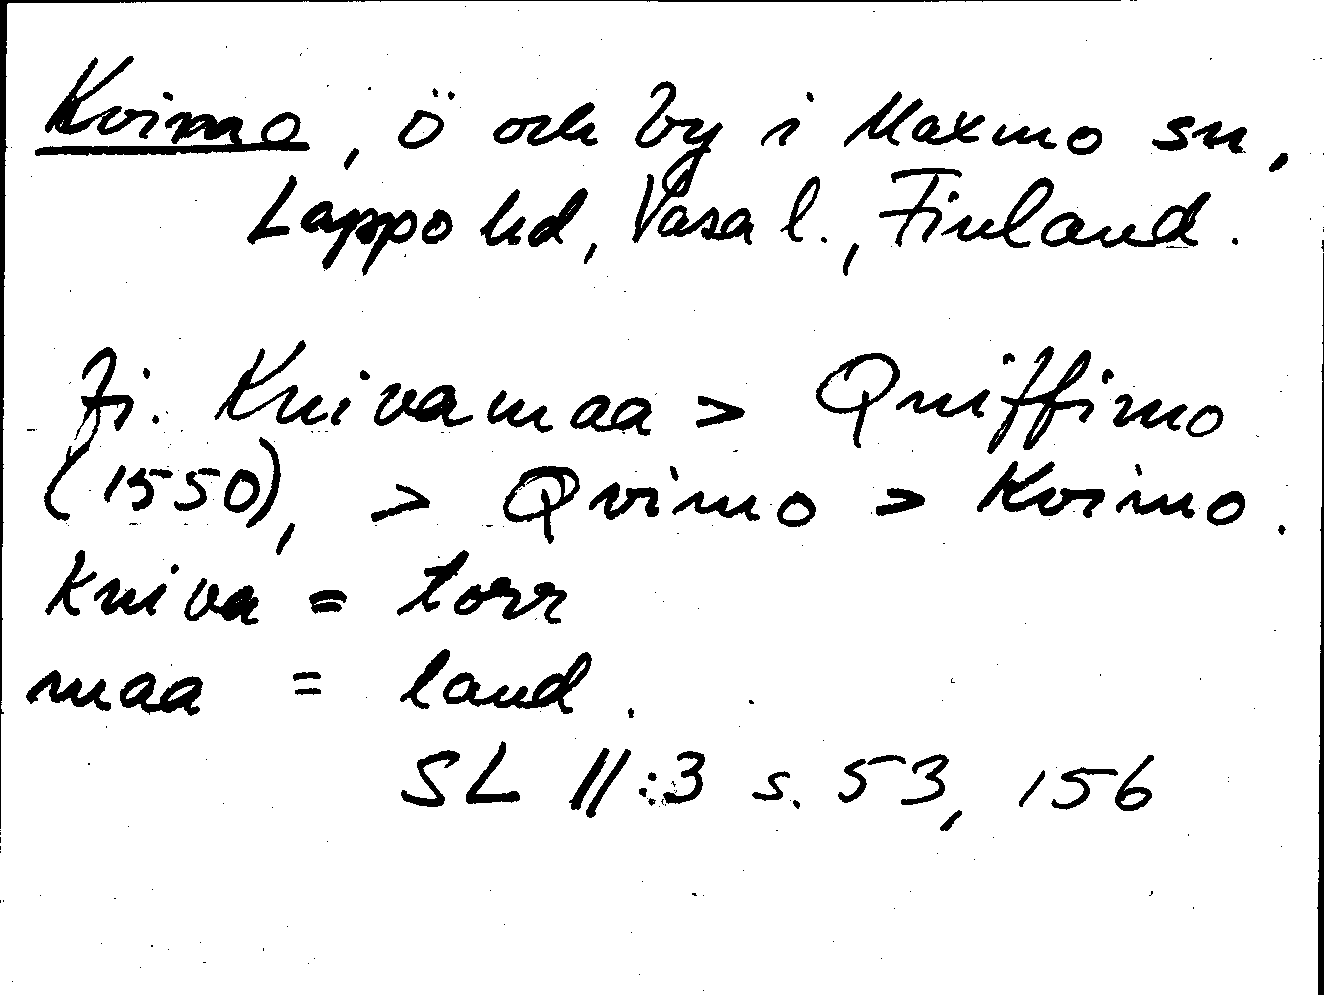 Kvimo, ö och by i Maxmo sn,
Lappo hd, Vasa l., Finland.
fi. Kuivamaa > Quiffimo
(1550), > Qvimo > Kvimo.
kuiva = torr
maa = land.
SL II:3 s. 53, 156